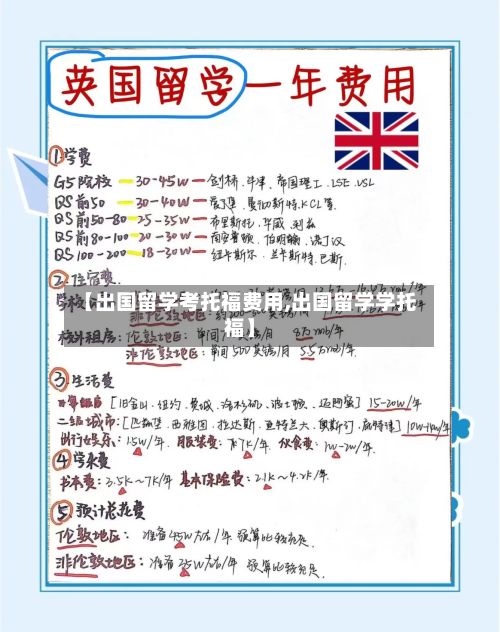 英国留学一年费用
①学费
G5院校 30-45W 剑桥、牛津、帝国理工、LSE、USL
QS前50 30-40W 爱丁堡、曼彻斯特、KCL等
QS前50-80 25-35W 布里斯托、华威、利兹
QS前80-100 20-30W 南安普顿、伯明翰、诺丁汉
QS100-200 18-30W 纽卡斯尔、兰卡斯特、巴斯
②住宿费
【出国留学考托福费用,出国留学学托
福】
校外租房: 伦敦地区: 8万rmb/年
非伦敦地区: 单间500英镑/月 5.5万rmb/年
③生活费
[旧金山、纽约、费城、洛杉矶、波士顿、迈阿密] 15-20W/年
二线城市: [匹兹堡、西雅图、拉达斯、亚特兰大、奥斯汀、底特律] 10W-14W/年
出行娱乐: 1.5W/年. 服装费: 7K/年. 伙食费: 1W-2W/年.
④学杂费
书本费: 3.5K~7K/年 基本保险费: 2.1K~4.2K/年.
⑤预计总花费
伦敦地区: 准备45W左右/年 预算比较充足.
非伦敦地区: 准备35W左右/年 预算比较充足.